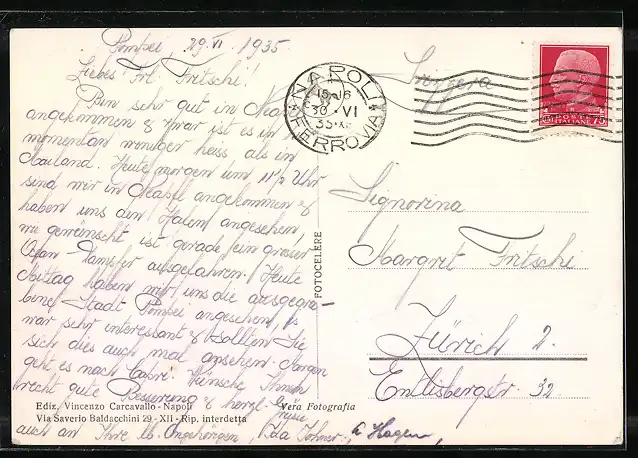 Pompei, 29. VI. 1935.
Liebes Frl. Fritschi!
Bin sehr gut in Neapel
angekommen & zwar ist es im
momentan weniger heiss als in
Mailand. Heute morgen um 11½ Uhr
sind wir in Neapel angekommen &
haben uns den Hafen angesehen,
wie gewünscht ist gerade ein grosser
Ozean-Dampfer ausgefahren. Heute
Mittag haben wir uns die ausgegra-
bene Stadt Pompei angesehen, es
war sehr interessant & sollten Sie
sich dies auch mal ansehen. Morgen
geht es nach Capri. Wünsche Ihnen
recht gute Besserung & herzl. Grüsse
auch an Ihre lb. Angehörigen, Ida
Ediz. Vincenzo Carcavallo - Napoli
Via Saverio Baldacchini 29 - XII - Rip. interdetta
Vera Fotografia
FOTOCELERE
NAPOLI
15-16
30·VI
35·XIII
FERROVIA
POSTE ITALIANE
75
Svizzera
Signorina
Margrit Fritschi
Zürich 2.
Entlisbergstr. 32